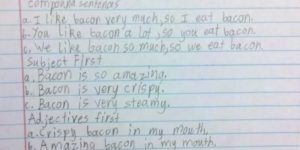 Compound sentences
a. I like bacon very much, so I eat bacon.
b. You like bacon a lot, so you eat bacon.
c. We like bacon so much, so we eat bacon.
Subject First
a. Bacon is so amazing.
b. Bacon is very crispy.
c. Bacon is very steamy.
Adjectives first
a. Crispy bacon in my mouth.
b. Amazing bacon in my mouth.